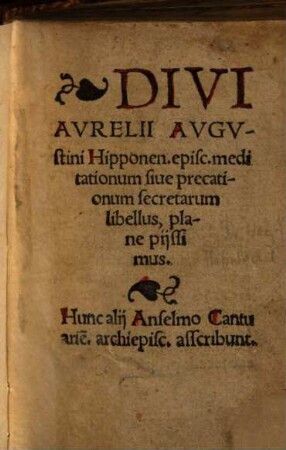 DIVI
AVRELII AVGV-
stini Hipponen. episc. medi
tationum siue precati-
onum secretarum
libellus, pla-
ne pijssi
mus.
Hunc alij Anselmo Cantu
ariē. archiepisc. asscribunt.